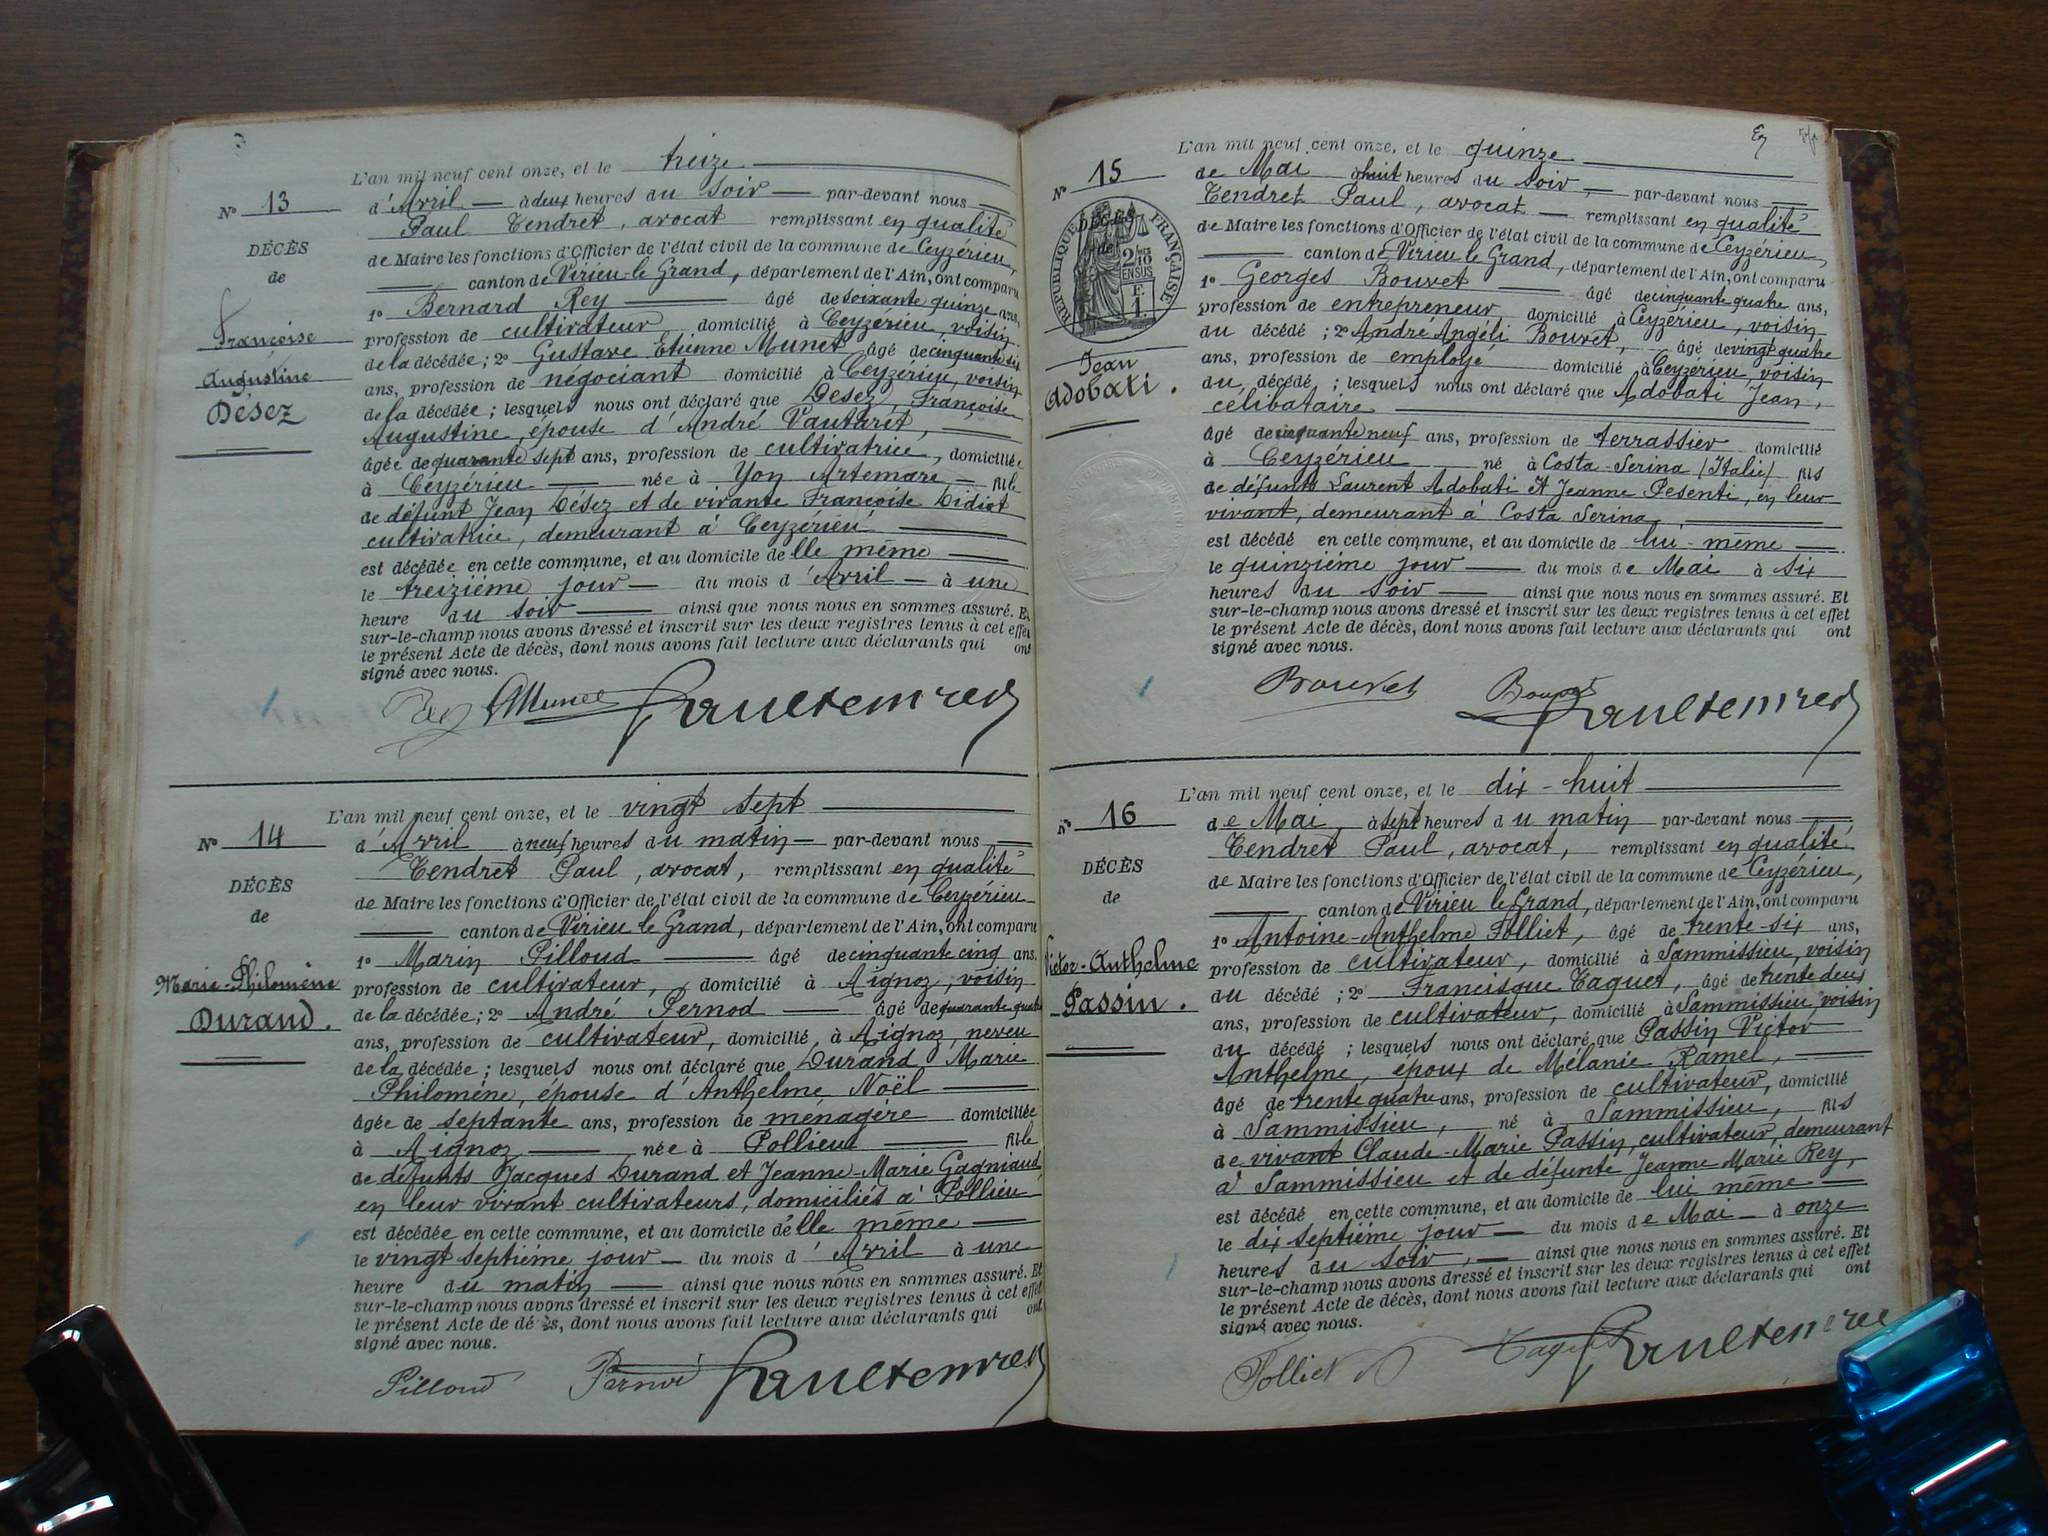 L'an mil neuf cent onze, et le treize
d'Avril à deux heures du soir par-devant nous
N° 13
Paul Tendret, avocat remplissant en qualité
DÉCÈS
de Maire les fonctions d'Officier de l'état civil de la commune de Ceyzérieu,
de
canton de Virieu-le Grand, département de l'Ain, ont comparu
1° Bernard Rey âgé de soixante quinze ans,
Françoise
profession de cultivateur domicilié à Ceyzérieu, voisin
Augustine
de la décédée; 2° Gustave Etienne Munet âgé de cinquante six
Désez
ans, profession de négociant domicilié à Ceyzérieu, voisin
de la décédée; lesquels nous ont déclaré que Desez, Françoise
Augustine, épouse d'André Vautaret,
âgée de quarante sept ans, profession de cultivatrice, domiciliée
à Ceyzérieu née à Yon Artemare, fille
de défunt Jean Désez et de vivante Françoise Didiot
cultivatrice, demeurant à Ceyzérieu
est décédée en cette commune, et au domicile de lle même
le treizième jour du mois d'Avril à une
heure du soir ainsi que nous nous en sommes assuré. Et
sur-le-champ nous avons dressé et inscrit sur les deux registres tenus à cet effet
le présent Acte de décès, dont nous avons fait lecture aux déclarants qui ont
signé avec nous.
Rey GMunet Paul Tendret
L'an mil neuf cent onze, et le vingt sept
N° 14
d'Avril à neuf heures du matin par-devant nous
Tendret Paul, avocat, remplissant en qualité
DÉCÈS
de Maire les fonctions d'Officier de l'état civil de la commune de Ceyzérieu
de
canton de Virieu le Grand, département de l'Ain, ont comparu
1° Marin Pilloud âgé de cinquante cinq ans,
Marie-Philomène
profession de cultivateur, domicilié à Aignoz, voisin
Durand.
de la décédée; 2° André Pernod âgé de quarante quatre
ans, profession de cultivateur, domicilié à Aignoz, neveu
de la décédée; lesquels nous ont déclaré que Durand Marie
Philomène, épouse d'Anthelme Noël
âgée de septante ans, profession de ménagère domiciliée
à Aignoz née à Pollieu fille
de défunts Jacques Durand et Jeanne-Marie Gagniaud
en leur vivant cultivateurs, domiciliés à Pollieu
est décédée en cette commune, et au domicile de lle même
le vingt septième jour du mois d'Avril à une
heure du matin ainsi que nous nous en sommes assuré. Et
sur-le-champ nous avons dressé et inscrit sur les deux registres tenus à cet effet
le présent Acte de décès, dont nous avons fait lecture aux déclarants qui ont
signé avec nous.
Pilloud Pernod Paul Tendret
L'an mil neuf cent onze, et le quinze
N° 15
de Mai à huit heures du soir, par-devant nous
Tendret Paul, avocat remplissant en qualité
DÉCÈS
de
RÉPUBLIQUE FRANÇAISE
2/10 EN SUS
F. 1
de Maire les fonctions d'Officier de l'état civil de la commune de Ceyzérieu,
canton de Virieu le Grand, département de l'Ain, ont comparu
1° Georges Bouvet âgé de cinquante quatre ans,
profession de entrepreneur domicilié à Ceyzérieu, voisin
du décédé; 2° André Angéli Bouvet, âgé de vingt quatre
Jean
ans, profession de employé domicilié à Ceyzérieu, voisin
Adobati.
du décédé; lesquels nous ont déclaré que Adobati Jean,
célibataire
âgé de cinquante neuf ans, profession de terrassier domicilié
à Ceyzérieu né à Costa-Serina (Italie) fils
de défunts Laurent Adobati et Jeanne Pesenti, en leur
vivant, demeurant à Costa Serina,
est décédé en cette commune, et au domicile de lui-même
le quinzième jour du mois de Mai à six
heures du soir ainsi que nous nous en sommes assuré. Et
sur-le-champ nous avons dressé et inscrit sur les deux registres tenus à cet effet
le présent Acte de décès, dont nous avons fait lecture aux déclarants qui ont
signé avec nous.
Bouvet Bouvet Paul Tendret
L'an mil neuf cent onze, et le dix-huit
N° 16
de Mai à sept heures du matin par-devant nous
Tendret Paul, avocat, remplissant en qualité
DÉCÈS
de Maire les fonctions d'Officier de l'état civil de la commune de Ceyzérieu,
de
canton de Virieu le Grand, département de l'Ain, ont comparu
1° Antoine-Anthelme Folliet, âgé de trente-six ans,
Victor-Anthelme
profession de cultivateur, domicilié à Sammissieu, voisin
Passin.
du décédé; 2° Francisque Taguet, âgé de trente deux
ans, profession de cultivateur, domicilié à Sammissieu, voisin
du décédé; lesquels nous ont déclaré que Passin Victor
Anthelme, époux de Mélanie Ramel,
âgé de trente quatre ans, profession de cultivateur, domicilié
à Sammissieu, né à Sammissieu, fils
de vivant Claude-Marie Passin, cultivateur, demeurant
à Sammissieu et de défunte Jeanne Marie Rey,
est décédé en cette commune, et au domicile de lui même
le dix septième jour du mois de Mai à onze
heures du soir, ainsi que nous nous en sommes assuré. Et
sur-le-champ nous avons dressé et inscrit sur les deux registres tenus à cet effet
le présent Acte de décès, dont nous avons fait lecture aux déclarants qui ont
signé avec nous.
Folliet Taguet Paul Tendret